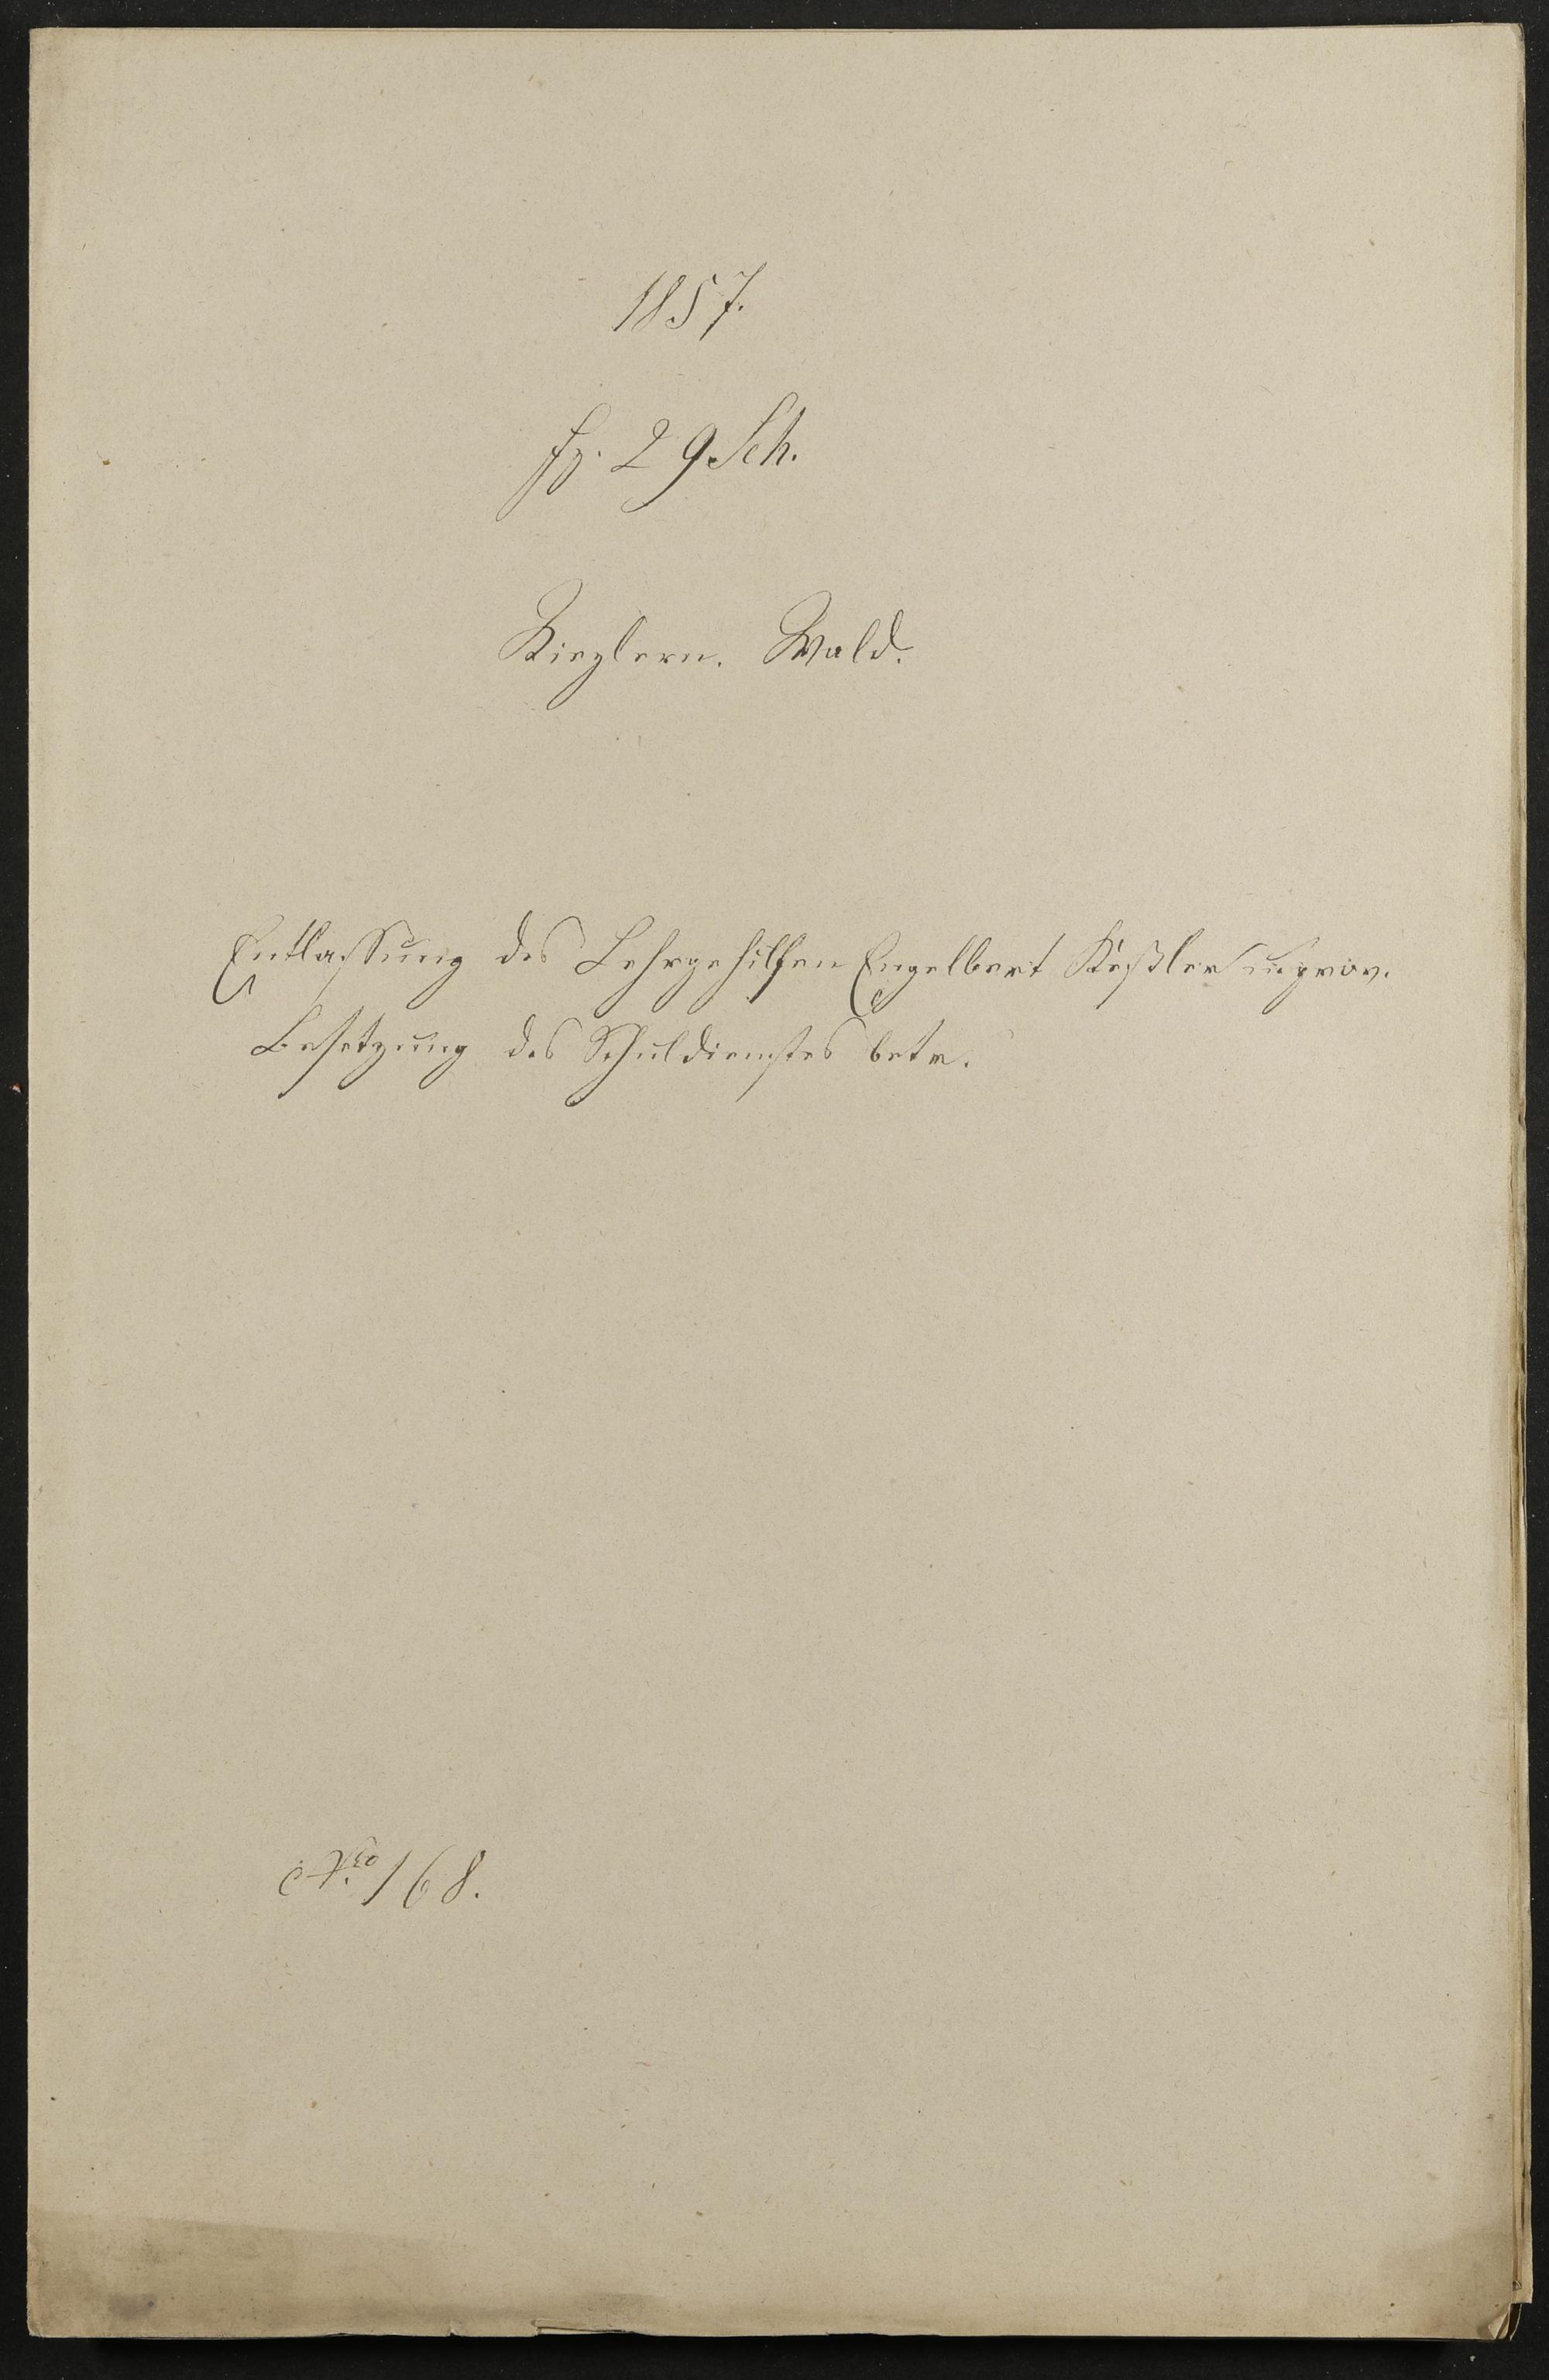 1857.
fz. 29 Sch.
Riezlern. Wald.
Entlassung des Lehrgehilfen Engelbert Keßler u. prov.
Besetzung des Schuldienstes betr.
No. 168.